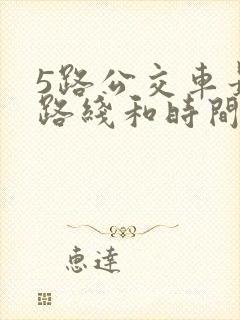 5路公交車
路綫和時間
惠達